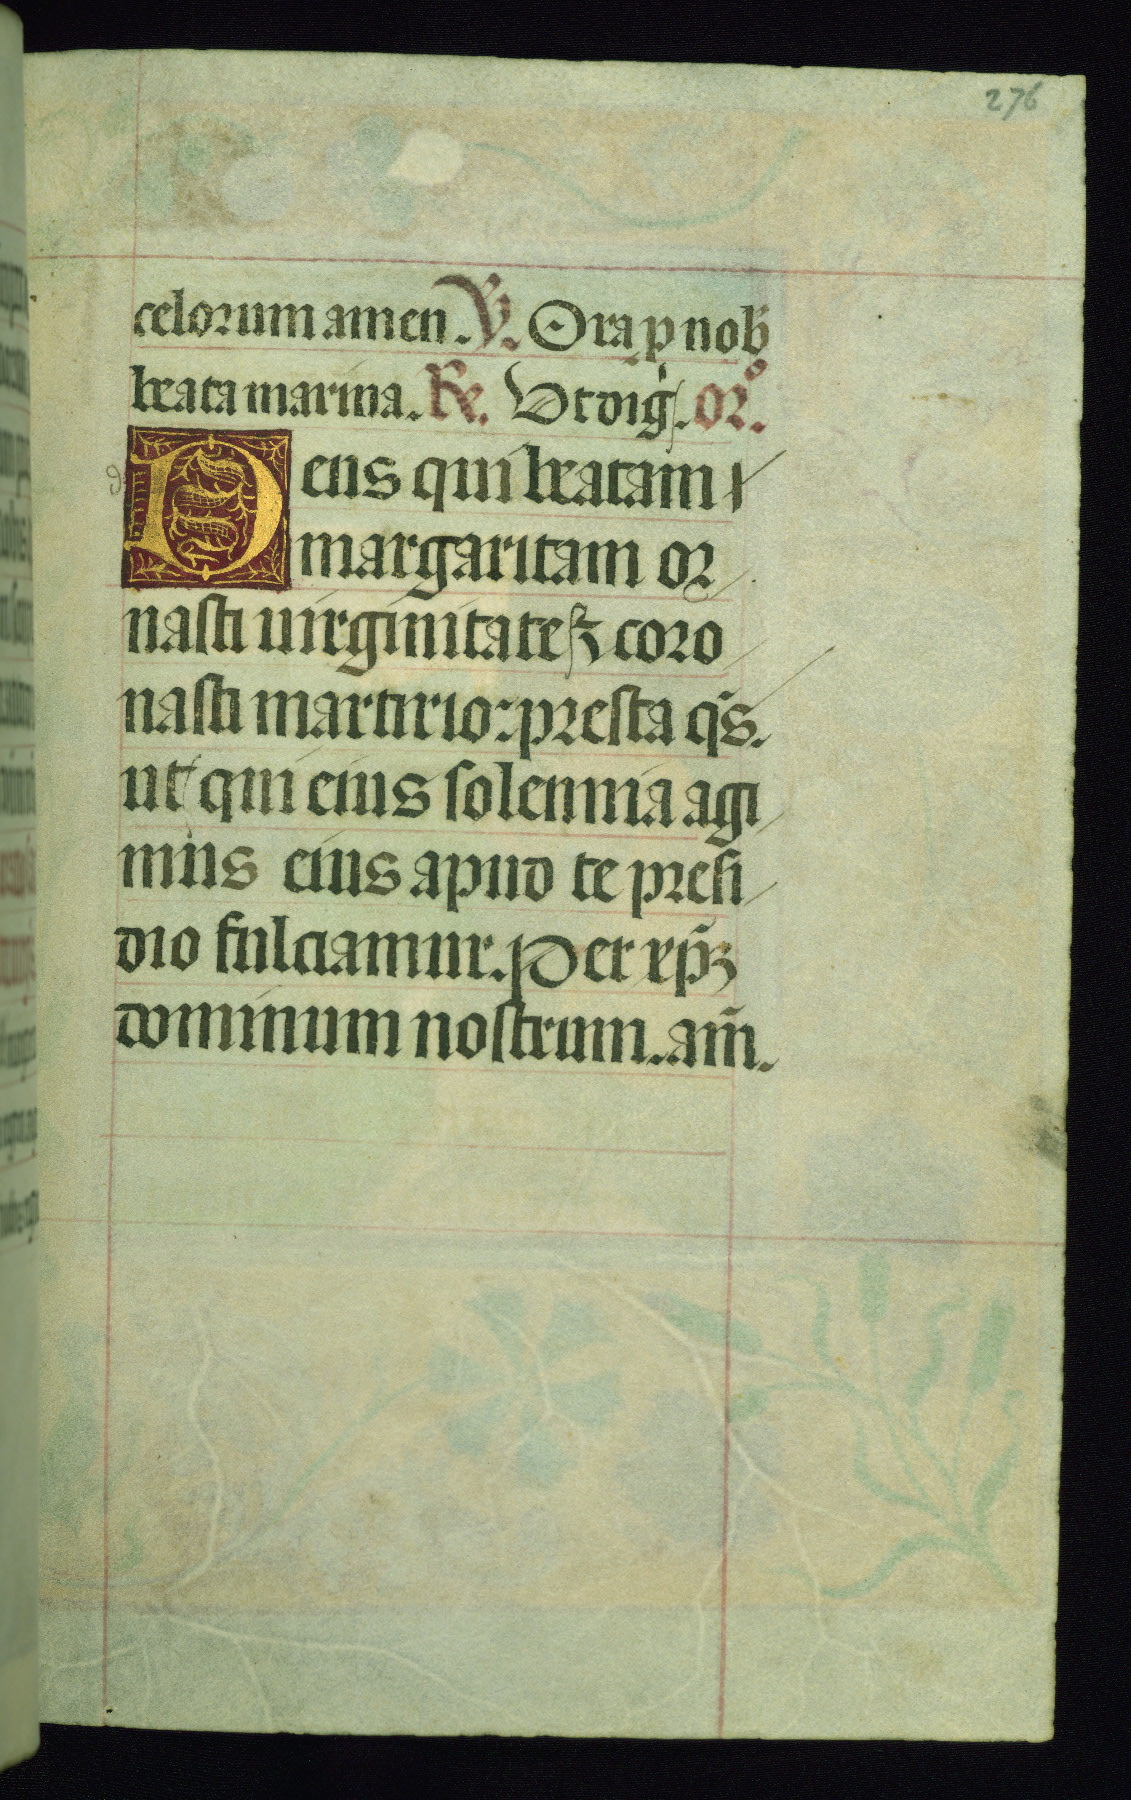 276
celorum amen. V. Ora p nob
beata marina. Re. Ut dig. or.
Deus qui beatam
margaritam or
nasti uirginitate z coro
nasti martirio: presta qs.
ut qui eius solennia agi
mus eius apud te presi
dio fulciamur. Per xpm
dominum nostrum. am.